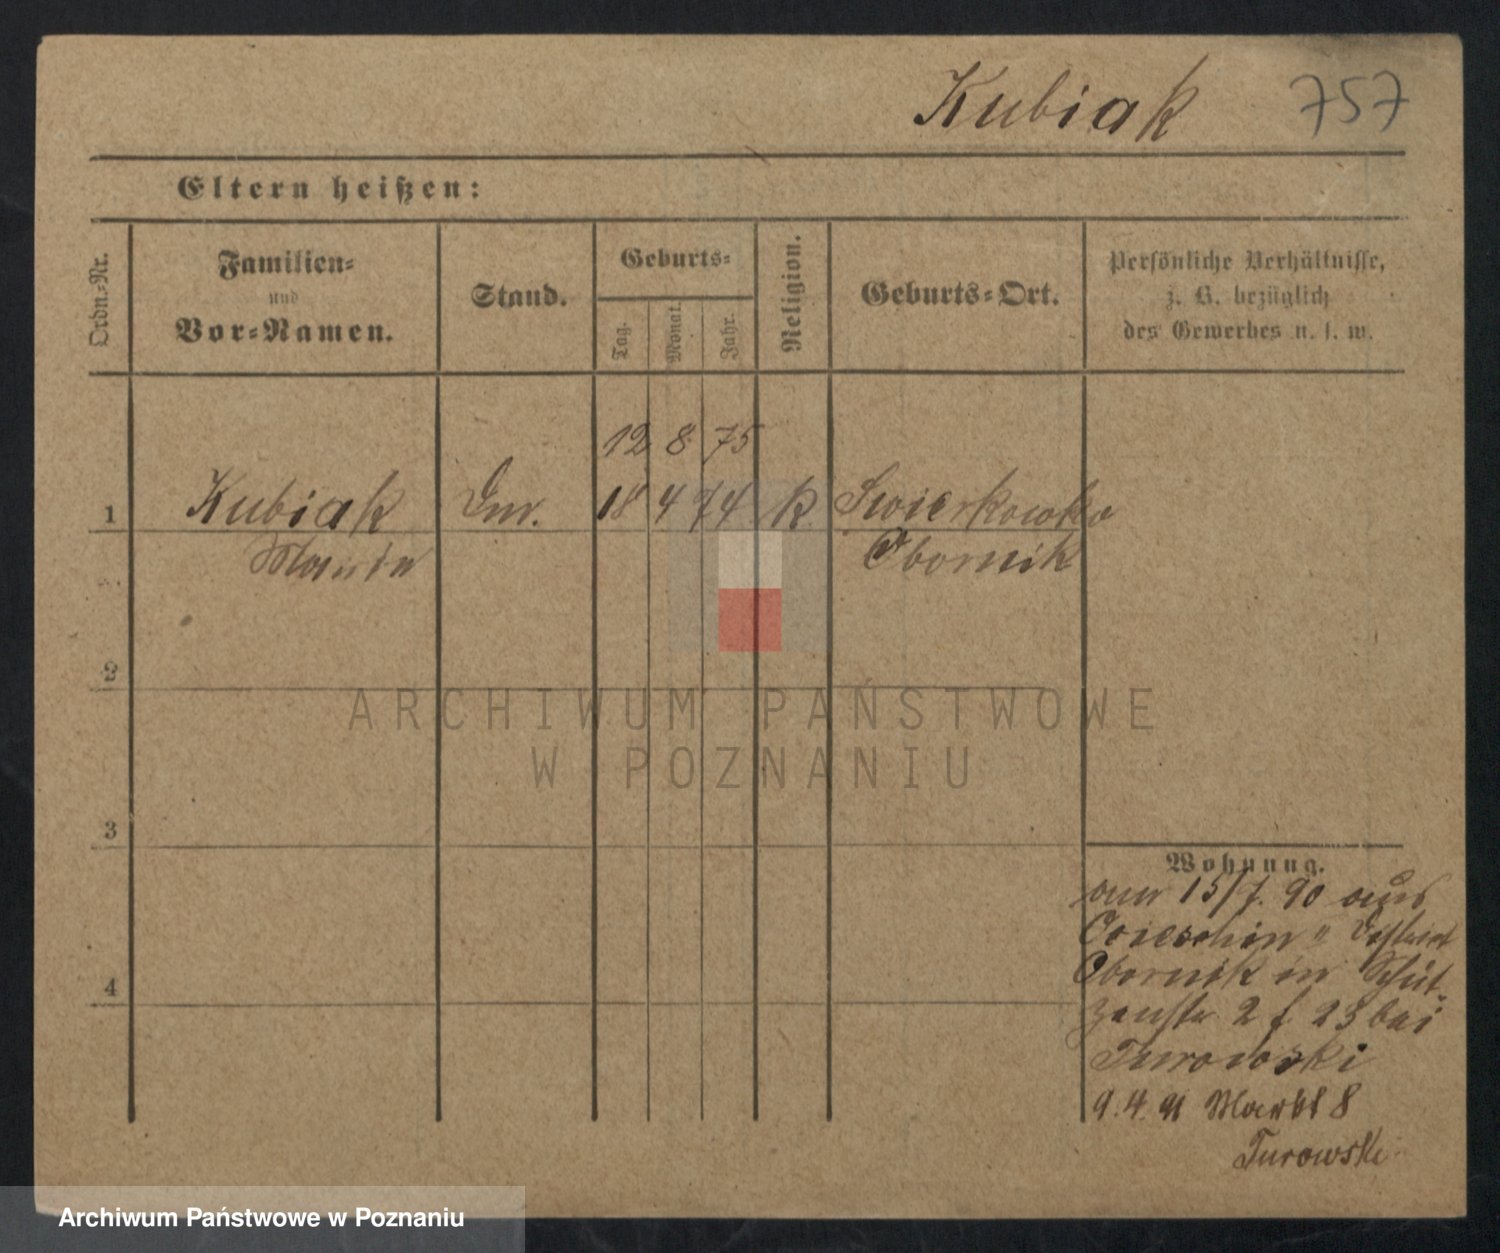 Kubiak 757
Eltern heißen:
Ordn.-Nr.
Familien-
und
Vor-Namen.
Stand.
Geburts-
Tag.
Monat.
Jahr.
Religion.
Geburts-Ort.
Persönliche Verhältnisse,
z. B. bezüglich
des Gewerbes u. s. w.
12 8 75
1 Kubiak 18 4 74 k. Swierkowko
Obornik
2
3
4
Wohnung.
15/7. 90 aus
Obornik in Schüt-
zenstr 2 f 23 bei
Turowski
9.4.91 Markt 8
Turowski
ARCHIWUM PAŃSTWOWE
W POZNANIU
Archiwum Państwowe w Poznaniu